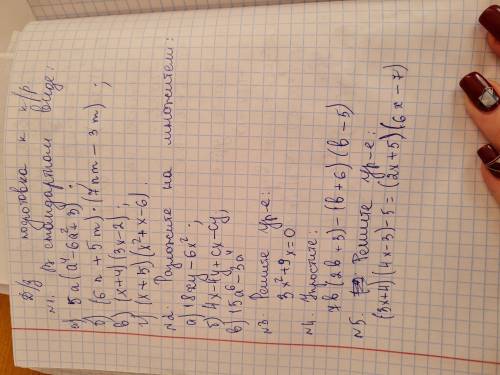 Д/з подготовка к к/р.
№1. В стандартном виде:
а) 5a(a⁴-6a²+3);
б) (6n+5m)·(7nm-3m);
в) (x+4)(3x-2);
г) (x+5)(x²+x-6).
№2. Разложите на множители:
а) 18xy-6x²;
б) 4x-4y+cx-cy;
в) 15a⁶-3a⁴
№3 Решите ур-е:
3x²+9x=0
№4. Упростите:
7b(2b+3)-(b+6)(b-5)
№5. Решите ур-е:
(3x+4)(4x-3)-5=(2x+5)(6x-7)